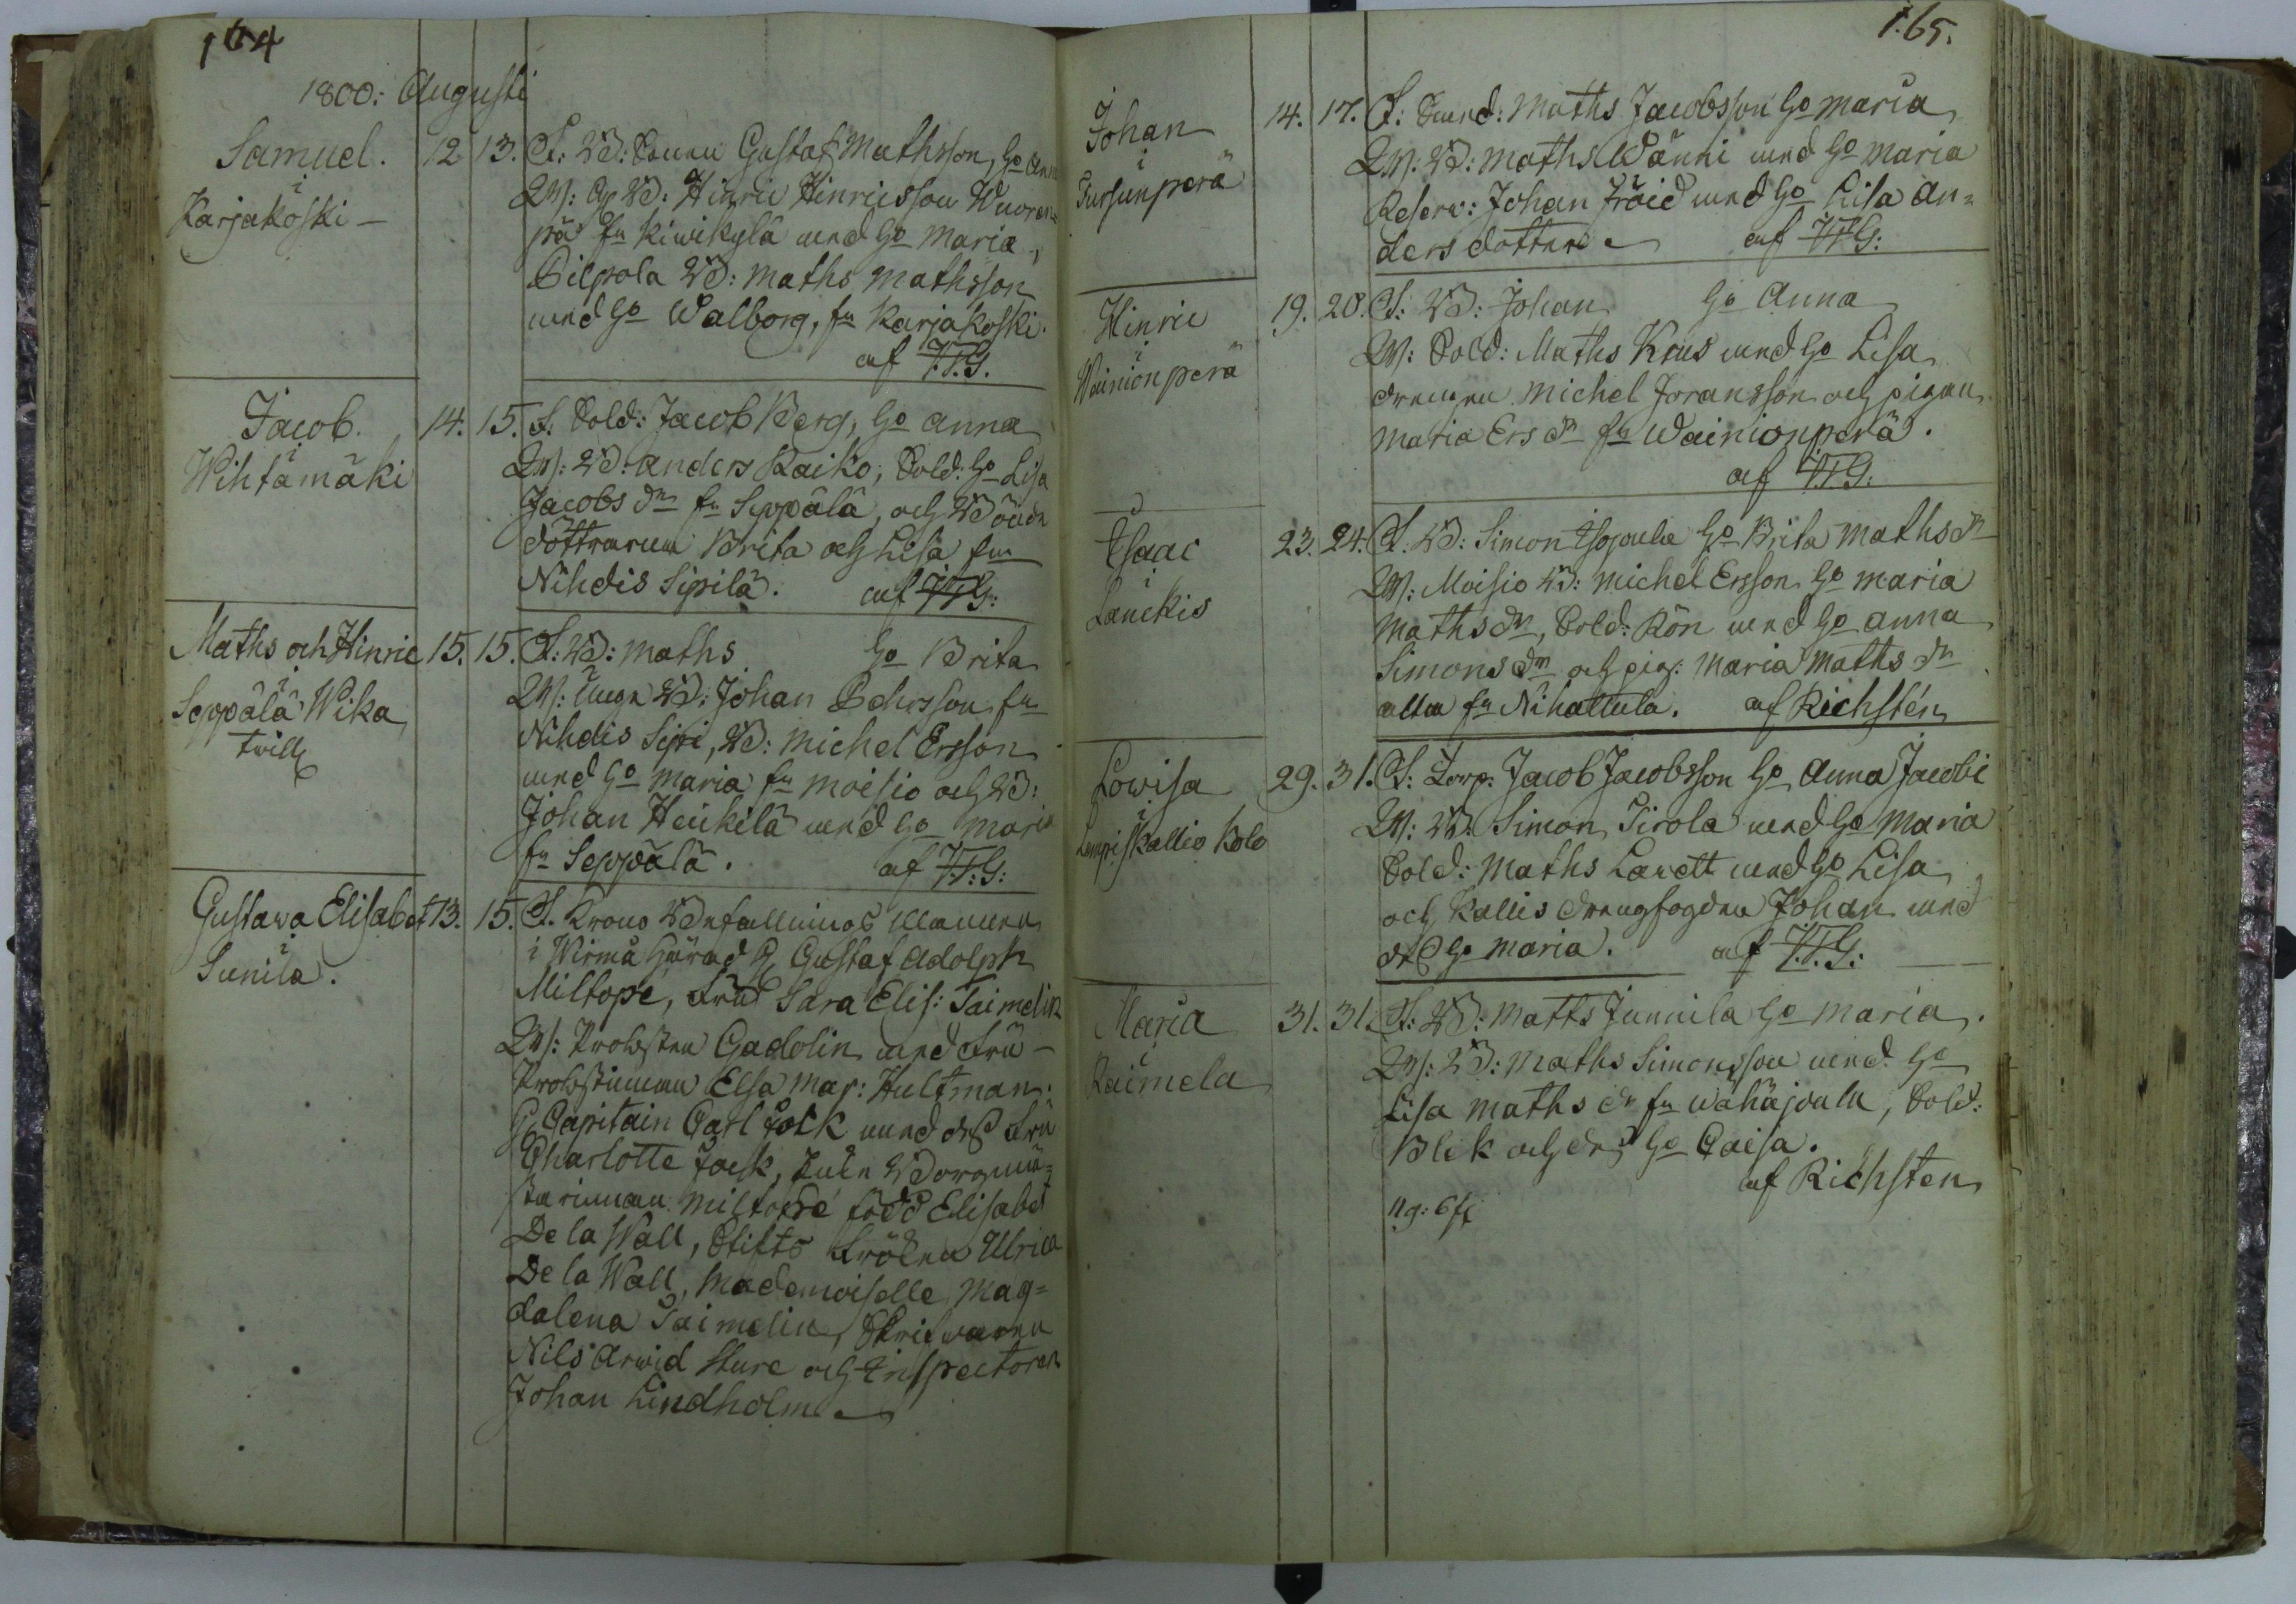 164
1800: Augusti
Samuel.
i
Karjakoski
12 13. F: B: Sonen Gustaf Mathsson, Ho Anna
W: B: Hinric Hinricsson Wuoren=
pä fn Kiwikylä med Ho Maria,
Pilpola B: Maths Mathsson
med Ho Walborg, fn Karjakoski.
af J.T.G.
Jacob.
i
Wihtamäki
14. 15. F. Sold: Jacob Berg, Ho Anna
W: B: Anders Kaiko, Sold: Ho Lisa
Jacobs dr fn Seppälä, och Bönde
döttrarna Brita och Lisa från
Nihdis Sipilä. af J.T.G:
Maths och Hinric
i
Seppälä Wika
twill
15. 15. F: B: Maths Ho Brita
W: Unge B: Johan Pehrsson fn
Nihdis Sipi, B: Michel Ersson
med Ho Maria fn Moisio och B:
Johan Heikilä med Ho Maria
fn Seppälä. af J.T:G:
Gustawa Elisabet
i
Sunila.
13. 15. F. Krono Befallnings Mannen
i Wirmå Härad H Gustaf Adolph
Miltopé, Fru Sara Elis: Taimelin
W: Probsten Gadolin med Fru
Probstinnan Elsa Mar: Hultman:
H Capitain Carl Jack med dess Fru
Charlotte Jack, Enke Borgmä=
starinnan Miltopé född Elisabet
De la Wall, Stifts Fröken Ulrica
De la Wall, Mademoiselle Mag=
dalena Taimelin, Skrifwaren
Nils Arwid Sture och Inspectoren
Johan Lindholm
1.65.
Johan
i
Tursunperä
14. 17. F: Maths Jacobsson Ho Maria
W: B: Maths Wänni med Ho Maria
Reserv: Johan Fröid med Ho Lisa An=
dersdotter af J.T.G:
Hinric
i
Wainionperä
19. 20. F: B: Johan Ho Anna
W: Sold: Maths Krus med Ho Lisa
drengen Michel Joransson och pigan
Maria Ers dr fn Wainionperä.
af J.T.G:
Isaac
i
Lauckis
23. 24. F: B: Simon Isopoula Ho Brita Maths dr
W: Moisio B: Michel Ersson Ho Maria
Maths dr, Sold: Rön med Ho Anna
Simons dr och pig: Maria Maths dr
alla fn Nihattula. af Richstén
Lowisa
i
Lempiskallio Kolo
29. 31. F: Torp: Jacob Jacobsson Ho Anna Jacobi
W: B: Simon Sirola med Ho Maria
Sold: Maths Lavett med Ho Lisa
och Kallis drengfogden Johan med
dess Ho Maria. af J.T.G:
Maria
i
Raimela
31. 31. F: B: Matts Junnila Ho Maria.
W: B: Maths Simonsson med Ho
Lisa Maths dr fn Wahäjoulu, Sold:
Blek och dess Ho Caisa.
af Richsten